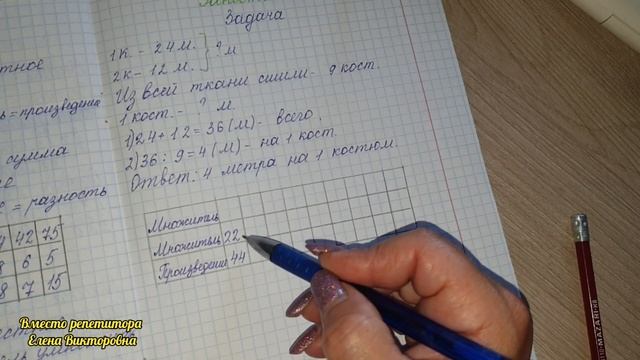 Задача
1к. - 24 м.
2к - 12 м.
? м
Из всей ткани сшили - 9 кост.
1 кост. - ? м.
1) 24 + 12 = 36 (м) - всего
2) 36 : 9 = 4 (м) - на 1 кост.
Ответ: 4 метра на 1 костюм.
Множитель
Множитель 22
Произведение 44
= произведение
сумма
= разность
42 75
6 5
7 15
Вместо репетитора
Елена Викторовна